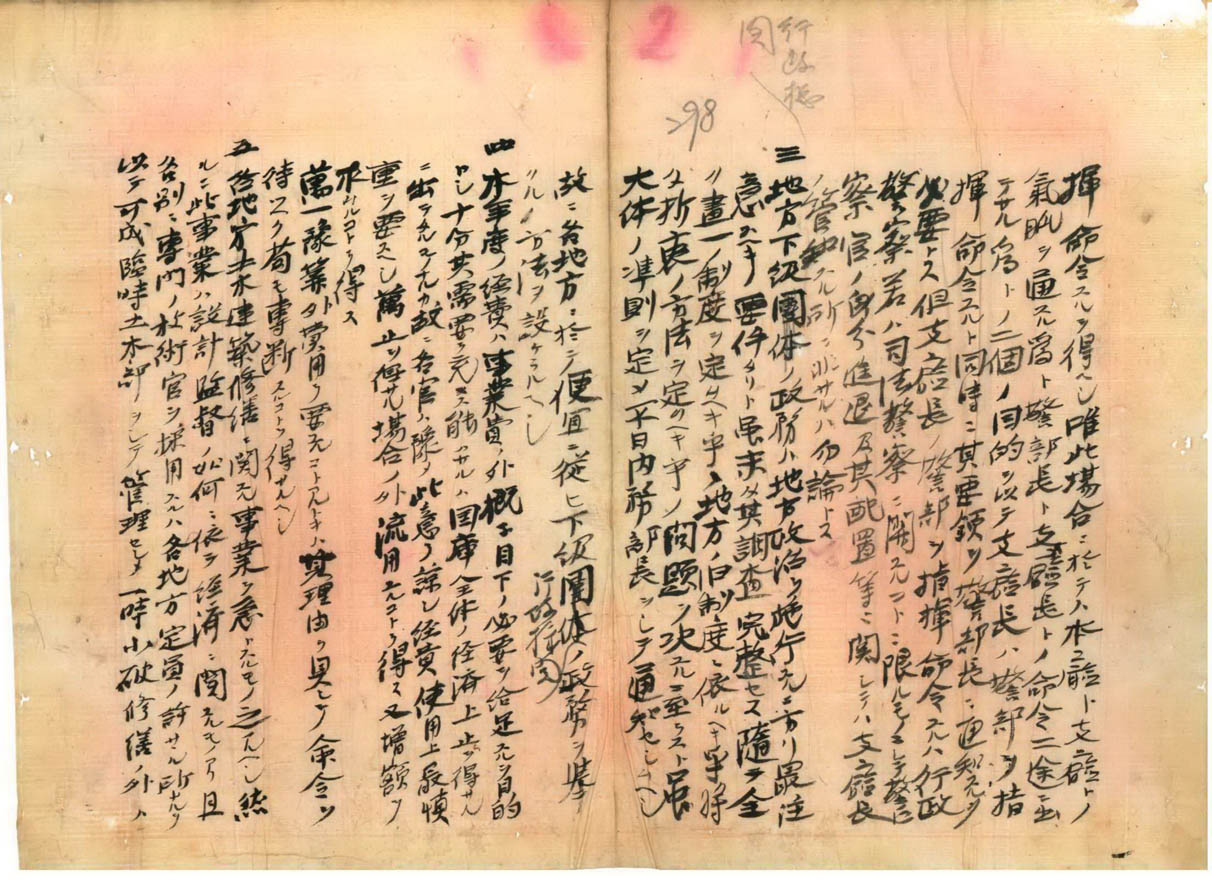 行政機
関
298
揮命令スルヲ得ヘシ唯此場合ニ於テハ本廳ト支廳トノ
氣脈ヲ通スル為ト警部長ト支廳長トノ命令二途ニ出
テサル為トノ二個ノ目的ヲ以テ支廳長ハ警部ヲ指
揮命令スルト同時ニ其要領ヲ警部長ニ通知スルヲ
必要トス但支廳長ノ警部ヲ指揮命令スルハ行政
警察若ハ司法警察ニ関スルコトニ限ルモノニシテ警
察官ノ身分進退及其配置等ニ関シテハ支廳長
ノ管知スル所ニ非サルハ勿論トス
三 地方下級團体ノ政務ハ地方政治ヲ施行スルニ方リ最注
意スヘキ要件タリト虽未タ其調査完整セス随テ全
ク畫一ノ制度ヲ定ムヘキ乎地方ノ旧制度ニ依ルヘキ乎将
タ折衷ノ方法ヲ定ムヘキ乎ノ問題ヲ決スルニ至ラスト虽
大体ノ準則ヲ定メ平日内務部長ヲシテ通知セシムヘシ
故ニ各地方ニ於テ便宜ニ従ヒ下級團体ノ政務ヲ挙
クルノ方法ヲ設ケラルヘシ
行政機関
四 本年度ノ経費ハ事業費ノ外概子目下ノ必要ヲ給足スルヲ目的
トシ十分其需要ヲ充ス能ハサルハ国庫全体ノ経済上止ヲ得サル
ニ出テタルモノナルカ故ニ各官ハ豫メ此意ヲ諒シ経費使用上最慎
重ヲ要スヘシ萬止ヲ得サル場合ノ外流用スルコトヲ得ス又増額ヲ
求ムルコトヲ得ス
萬一豫算外ノ費用ヲ要スルコトアルトキハ其理由ヲ具シテ命令ヲ
待ツヘク苟モ専断スルコトヲ得サルヘシ
五 各地方土木建築修繕ニ関スル事業ヲ急トスルモノ之アルヘシ然
ルニ此事業ハ設計監督ノ如何ニ依リ経済ニ関スルモノアリ且
各別ニ専門ノ技術官ヲ採用スルハ各地方定員ノ許サヽル所ナルヲ
以テ可成臨時土木部ヲシテ管理セシメ一時小破修繕ノ外ハ